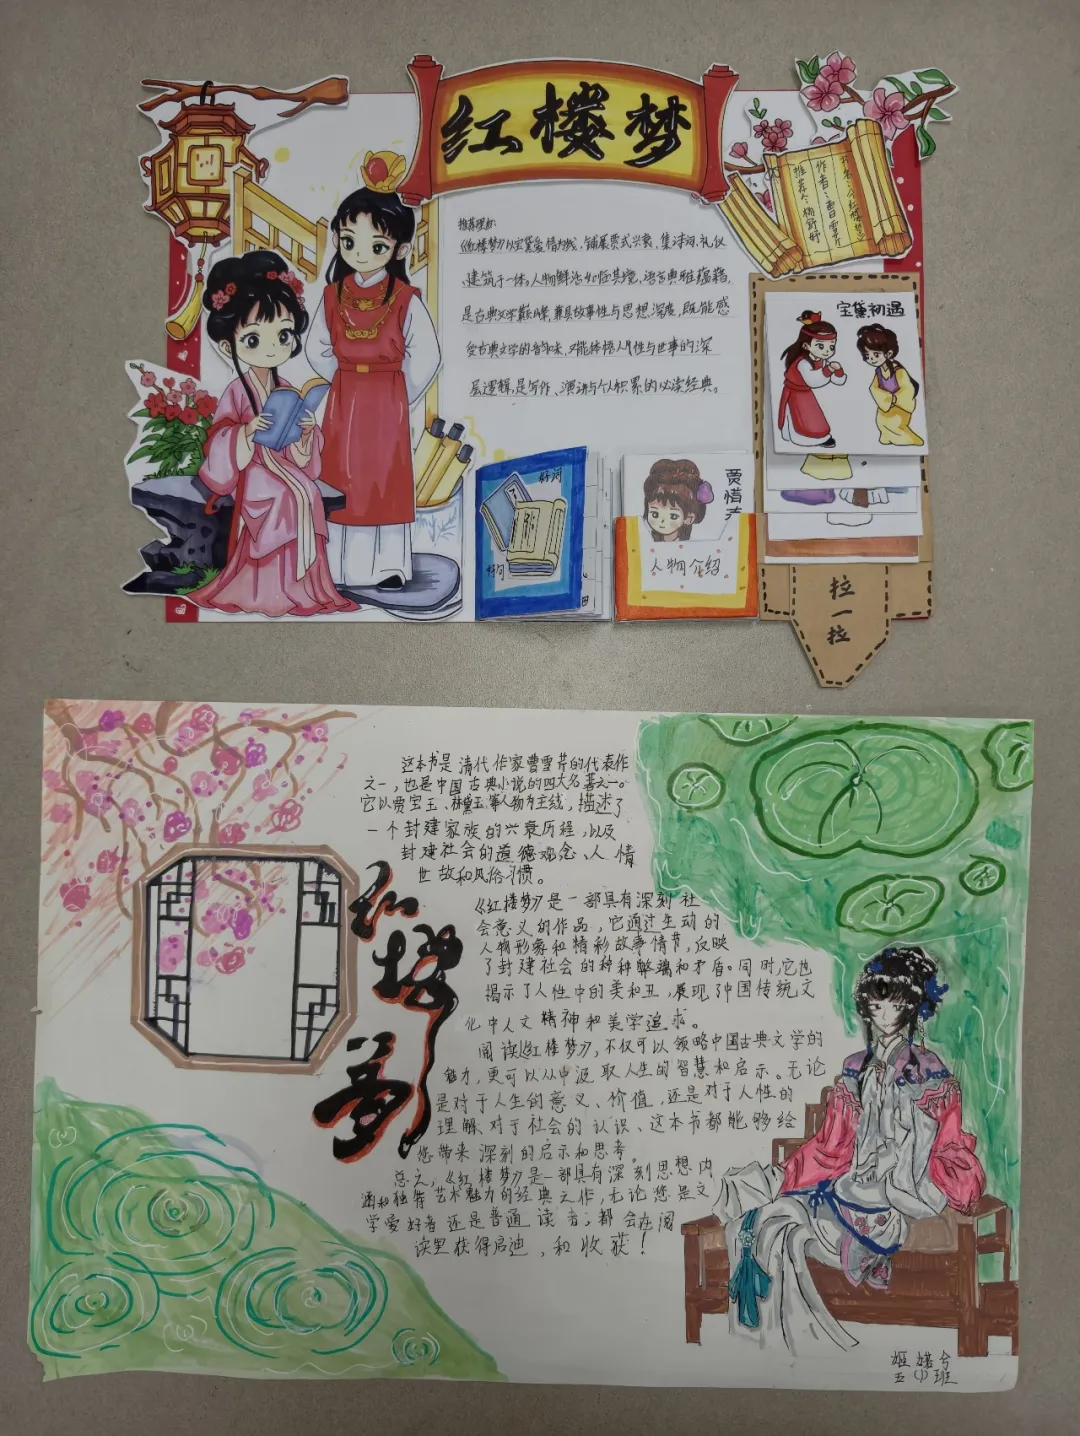 红楼梦
书名：《红楼梦》
作者：曹雪芹
推荐人：杨舒妤
推荐理由：
《红楼梦》以宝黛爱情为线，铺展贾式兴衰，集诗词、礼仪
、建筑于一体。人物鲜活如临其境、语言典雅蕴藉，
是古典文学巅峰，兼具故事性与思想深度，既能感
受古典文学的韵味，又能体悟人性与世事的深
层逻辑，是写作、演讲与个人积累的必读经典。
宝黛初遇
好词
好句
贾惜春
人物介绍
拉一拉
这本书是清代作家曹雪芹的代表作
之一，也是中国古典小说的四大名著之一。
它以贾宝玉、林黛玉等人物为主线，描述了
一个封建家族的兴衰历程，以及
封建社会的道德观念、人情
世故和风俗习惯。
红楼梦
《红楼梦》是一部具有深刻社
会意义的作品，它通过生动的
人物形象和精彩故事情节，反映
了封建社会的种种弊端和矛盾。同时，它也
揭示了人性中的美和丑，展现了中国传统文
化中人文精神和美学追求。
阅读《红楼梦》，不仅可以领略中国古典文学的
魅力，更可以从中汲取人生的智慧和启示。无论
是对于人生的意义、价值，还是对于人性的
理解、对于社会的认识、这本书都能够给
您带来深刻的启示和思考。
总之，《红楼梦》是一部具有深刻思想内
涵和独特艺术魅力的经典之作，无论您是文
学爱好者还是普通读者；都会在阅
读里获得启迪，和收获！
五(1)班